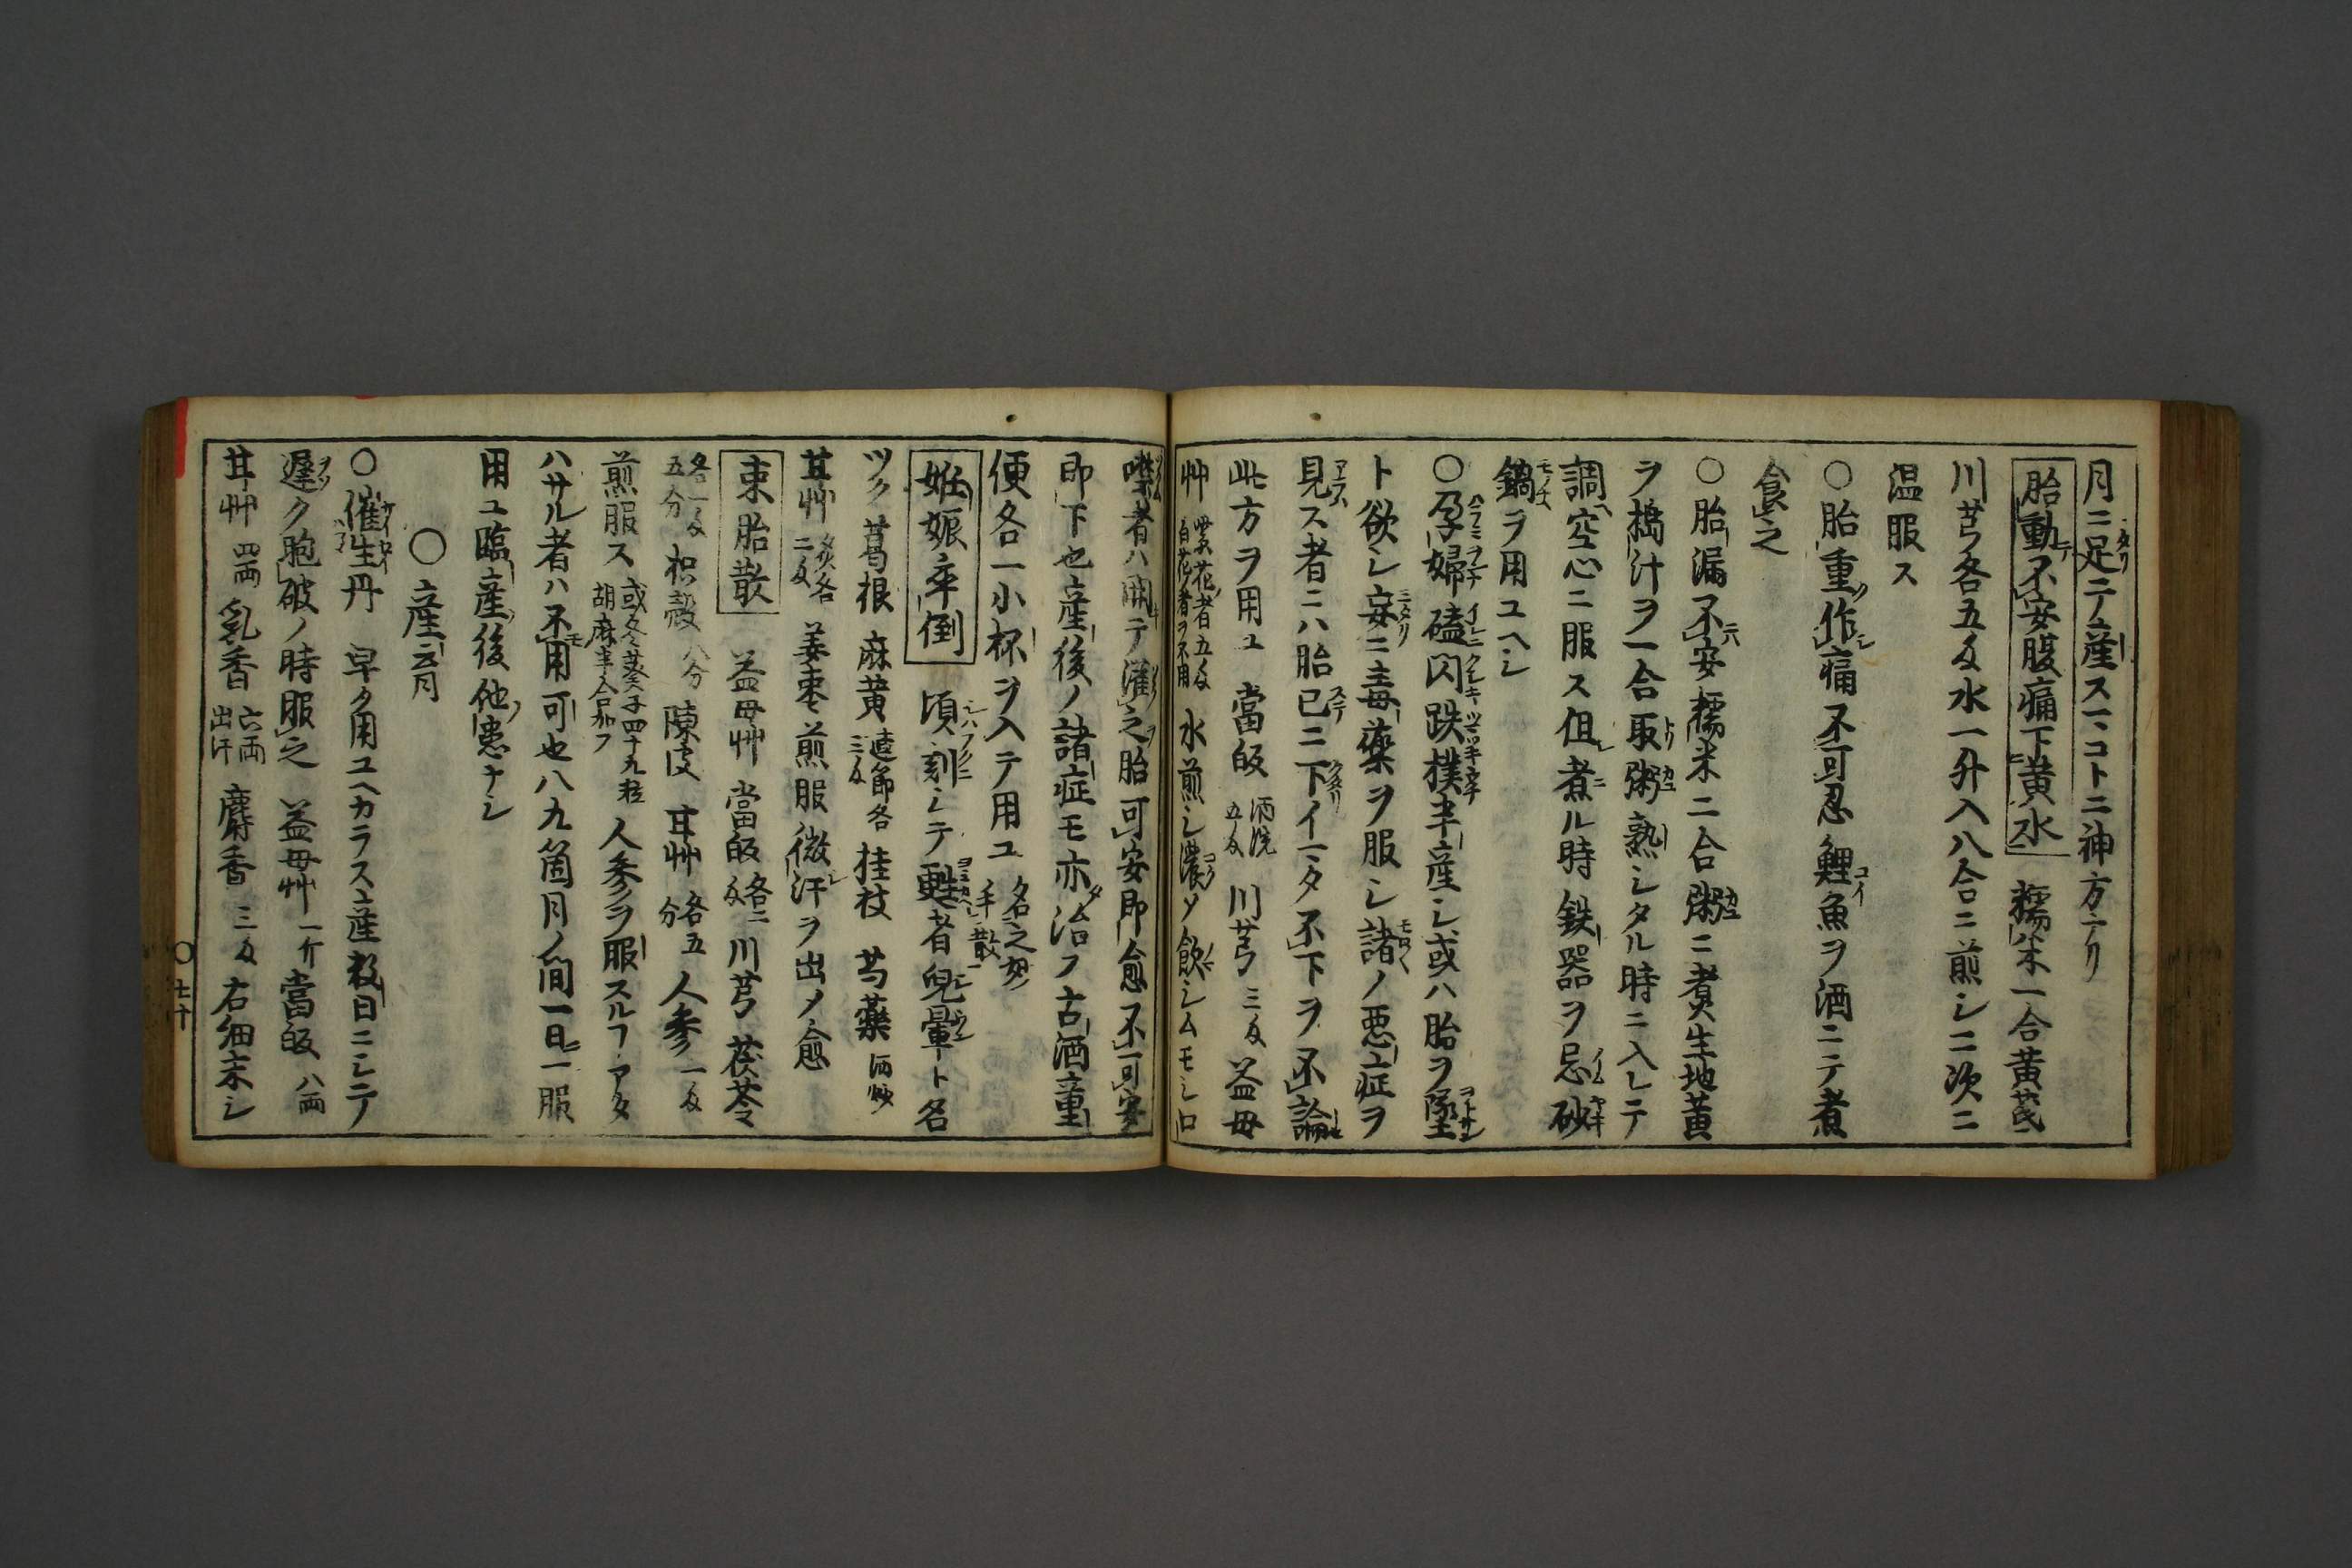 月ニ足テ産スヿコトニ神方ナリ
胎動不安腹痛下黄水 糯米一合黄茋
川芎各五匁水一升入八合ニ煎シ二次ニ
温服ス
○胎重作痛不可忍鯉魚ヲ酒ニテ煮
食之
○胎漏不安糯米二合粥ニ煮生地黄
ヲ搗汁ヲ一合取粥熟シタル時ニ入レテ
調空心ニ服ス但煮ル時鉄器ヲ忌砂
鍋ヲ用ユヘシ
○孕婦磕閃跌撲半産シ或ハ胎ヲ墜
ト欲シ妄ニ毒藥ヲ服シ諸ノ悪症ヲ
見ス者ニハ胎已ニ下イマタ不下ヲ不論
此方ヲ用ユ 當皈 酒洗五匁 川芎 三匁 益母
艸 紫花者五匁白花者ヲ不用 水煎シ濃メ飲シムモシ口
噤者ハ開テ灌之胎可安即愈不可安
即下也産後ノ諸症モ亦治フ古酒童
便各一小杯ヲ入テ用ユ 名之奪手散
妊娠卒倒 頃刻シテ甦者兒暈ト名
ツク葛根 麻黄 連節各三匁 桂枝 芍藥 酒炒
甘艸 炙各二匁 姜棗煎服微汗ヲ出メ愈
束胎散 益母艸 當皈 各二匁 川芎 茯苓
各一匁五分 枳殻 八分 陳皮 甘艸 各五分 人参 一匁
煎服ス 或冬葵子四十九粒胡麻半合加フ 人参ヲ服スルフアタ
ハサル者ハ不用可也八九箇月ノ間一日一服
用ユ臨産後他患ナシ
○産 ニ月
○催生丹 早ク用ユヘカラス産数日ニシテ
遅ク胞破ノ時服之 益母艸 一斤 當皈 八両
甘艸 四両 乳香 六両出汗 麝香 三匁 右細末シ
○七十